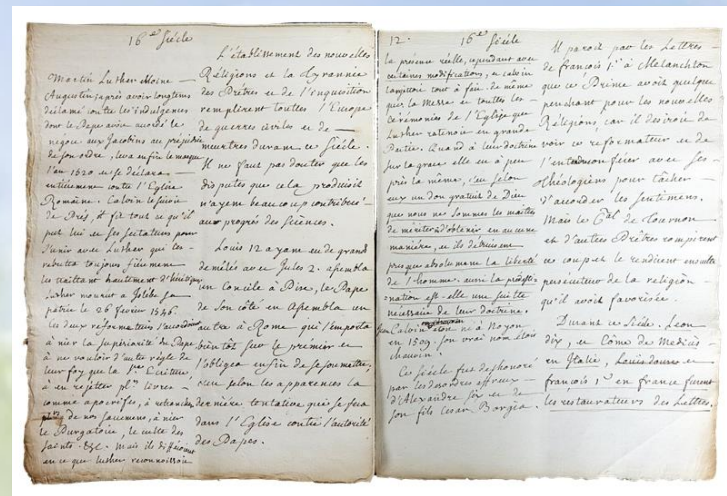 16e Siécle
Martin Luther Moine
Augustin, après avoir longtems
déclamé contre les indulgences
dont le Pape avoit accordé le
negoce aux Jacobins au préjudice
de son ordre, leva enfin le masque
l'an 1520 et se déclara
entierement contre l'Eglise
Romaine. Calvin le suivit
de Près, et fit tout ce qu'il
put lui et ses sectateurs pour
s'unir avec Luther qui les
rebutta toujours fierement
les traittant hautement d'hérétiques
Luther mourut a Islebe sa
patrie le 26 fevrier 1546.
les deux reformateurs s'accordoient
à nier la supériorité du Pape
à ne vouloir d'autre régle de
leur foy que la Ste Ecriture,
à en rejetter plrs livres
comme apocrifes, à retrancher
de nos sacremens, à nier
le Purgatoire, le culte des
saints &c. Mais ils différoient
en ce que luther reconnoissoit
L'établissement des nouvelles
Réligions et la tyrannie
des Prêtres et de l'inquisition
remplirent touttes l'Europe
de guerres civiles et de
meurtres durant ce Siécle.
Il ne faut pas douter que les
disputes que cela produisit
n'ayent beaucoup contribué
aux progrès des sciences.
Louis 12 ayant eu de grands
démélés avec Jules 2. assembla
un Concile à Pise, le Pape
de son côté en assembla un
autre à Rome qui l'emporta
bientôt sur le prémier et
l'obligea enfin de se soumettre,
c'est selon les apparences la
derniere tentative qui se fera
dans l'Eglise contre l'autorité
des Papes.
12. 16e Siécle
la présence réelle, cependant avec
certaines modifications, et calvin
la rejettoit tout à fait de même
que la Messe et touttes les
Cérémonies de l'Eglise que
Luther retenoit en grande
Partie. Quand à leur doctrine
sur la grace elle est à peu
près la même, c'est selon
eux un don gratuit de Dieu
que nous ne sommes les maîtres
de mériter ni d'obtenir en aucune
maniere, et ils détruisent
presque absolument la liberté
de l'homme. aussi la prédesti-
nation est-elle une suitte
nécessaire de leur doctrine.
Jean Calvin etoit né à Noyon
en 1509. son vrai nom etoit
chauvin.
Ce siécle fut deshonoré
par les desordres affreux
d'Alexandre six et de
son fils Cesar Borgia.
Il paroit par les Lettres
de françois 1er à Melanchton
que ce Prince avoit quelque
penchant pour les nouvelles
Réligions, car il desiroit de
voir ce reformateur et de
l'entendre conferer avec ses
théologiens pour tâcher
d'accorder les sentimens.
Mais le Cal de Tournon
et d'autres Prêtres rompirent
ce coup et le rendirent ensuitte
persécuteur de la religion
qu'il avoit favorisée.
Durant ce Siécle. Leon
dix, et Côme de Médicis
en Italie, Louis douze et
françois 1er en france furent
les restaurateurs des Lettres.